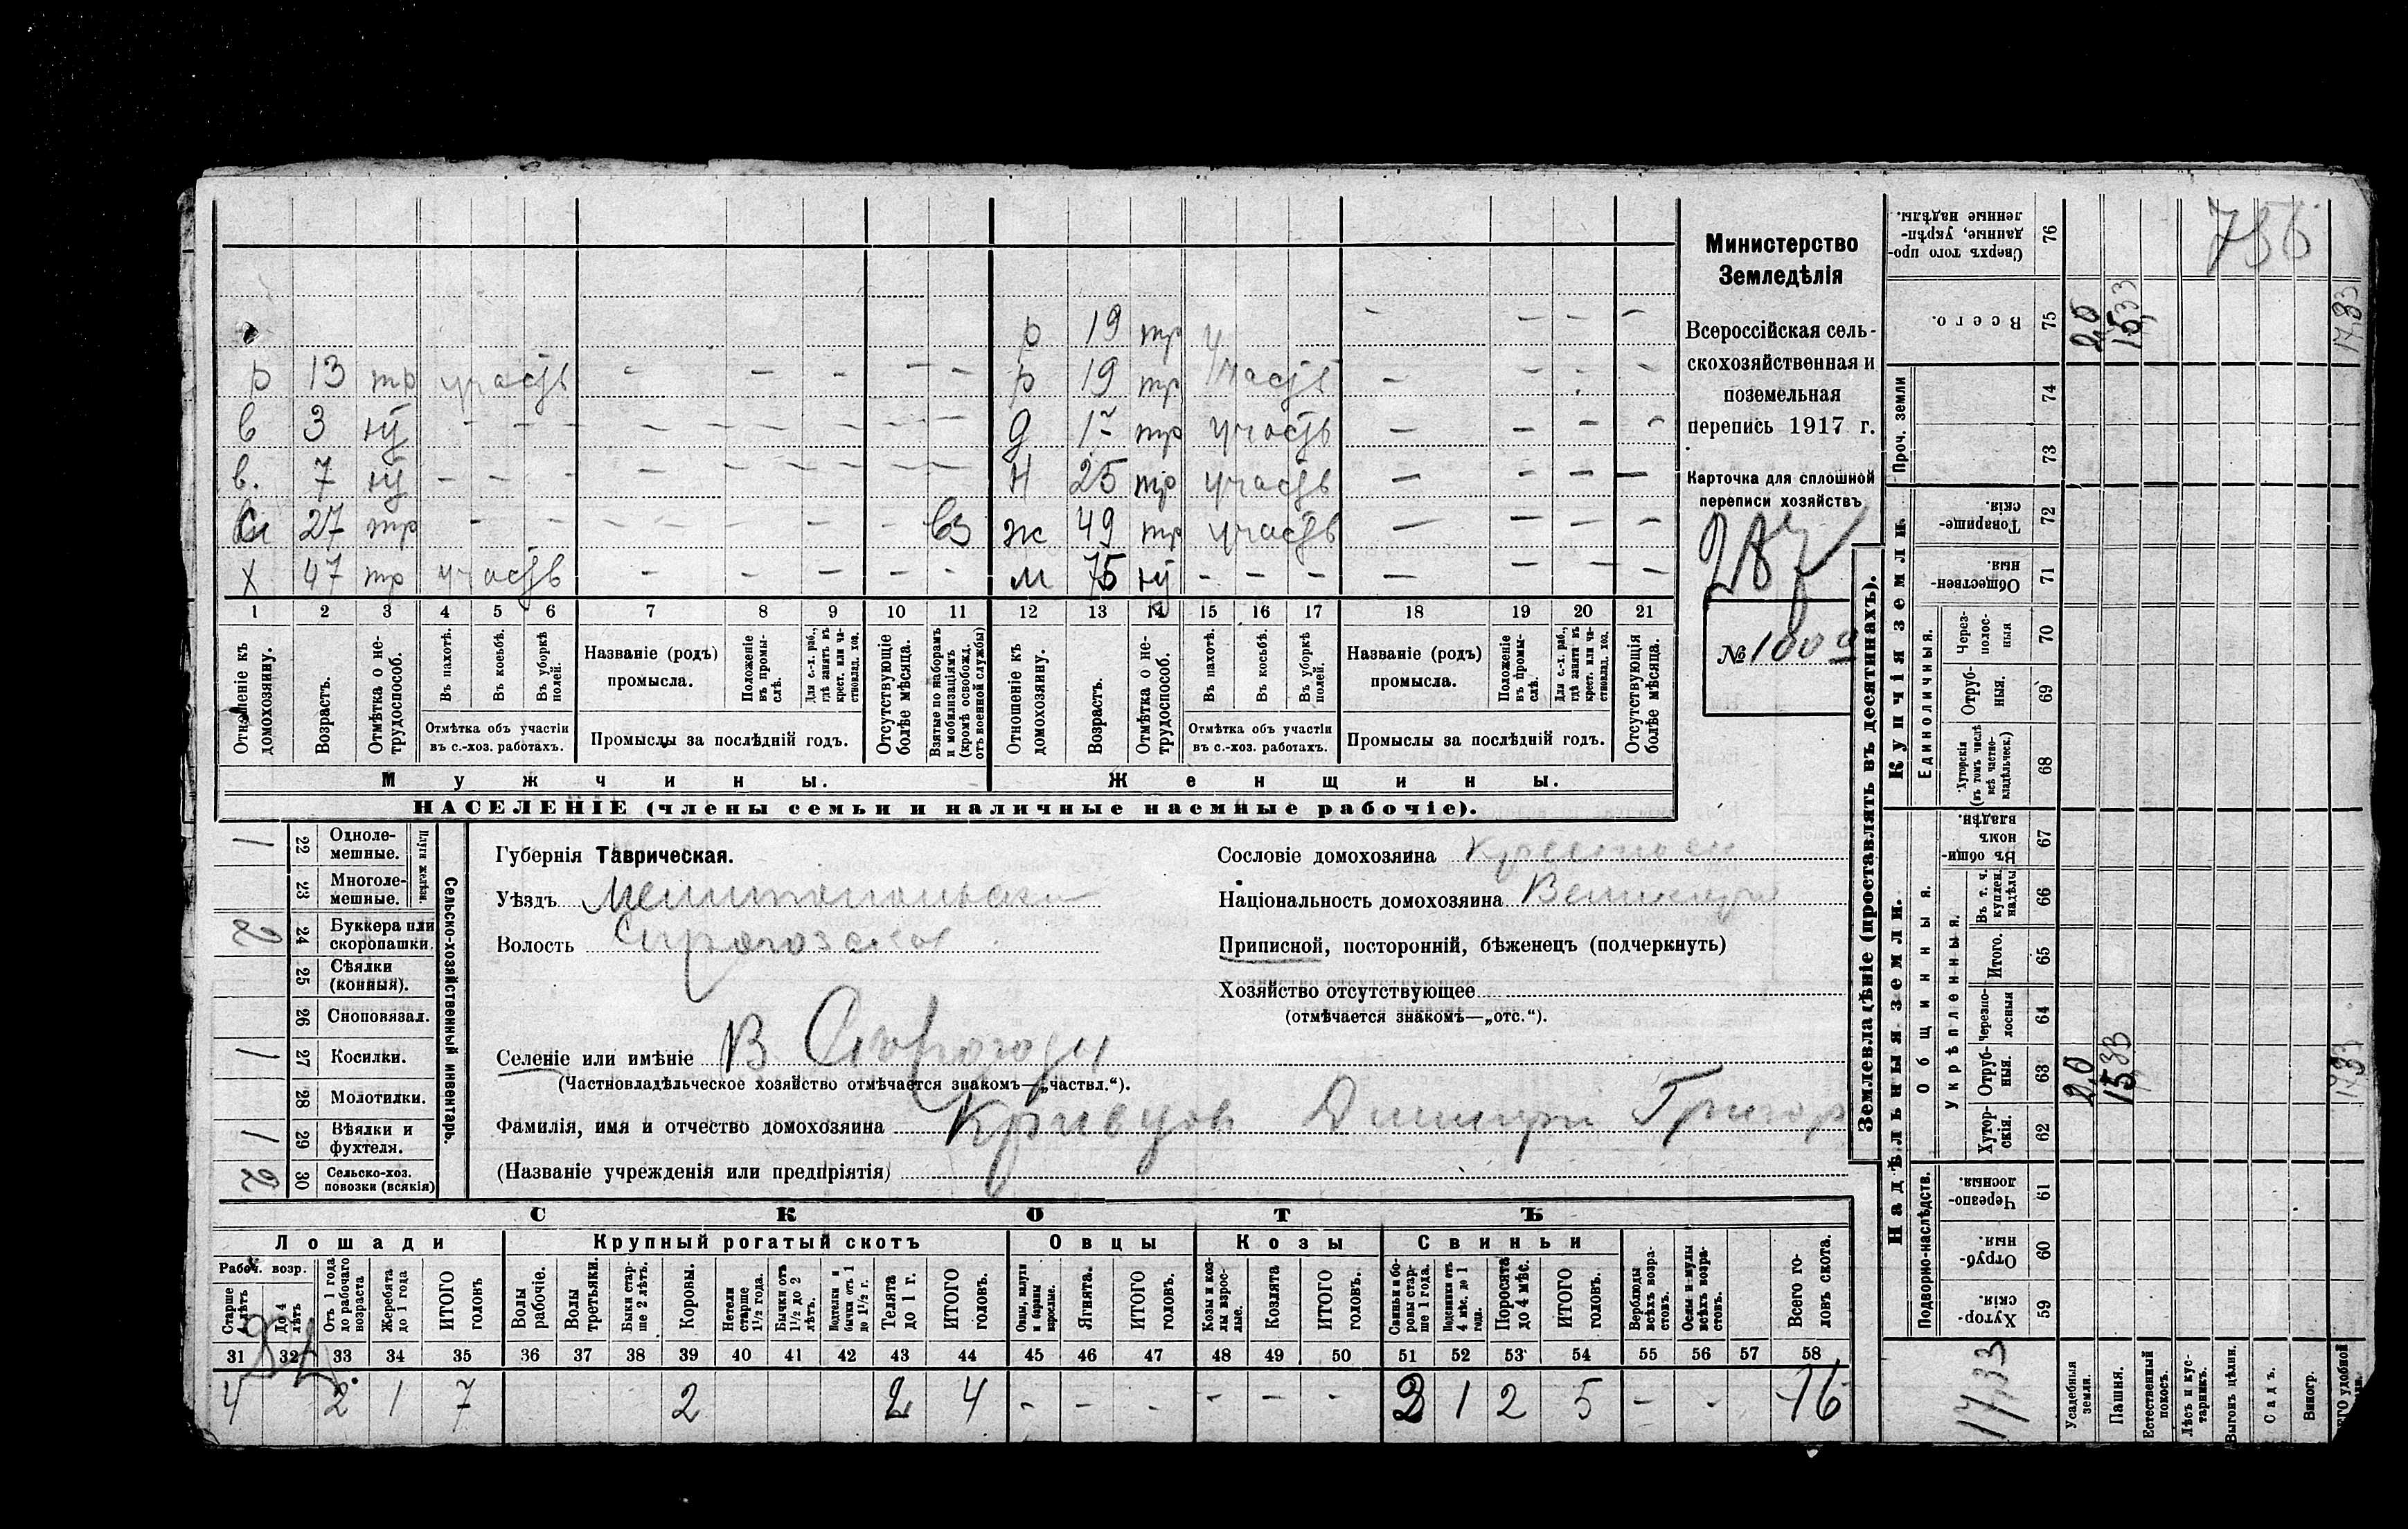 р 19 тр у - - - -
р 13 тр участв - - - - - р 19 тр участв - - - -
в 3 нт - - - - - - - - д 12 тр участв - - - -
в. 7 нт - - - - - - - - Н 25 тр участв - - - -
27 тр - - - - - - - вз ж 49 тр участв - - - -
х 47 тр участв - - - - - м 75 нт - - - - - - -
1 2 3 4 5 6 7 8 9 10 11 12 13 14 15 16 17 18 19 20 21
Отношеніе къ домохозяину.
Возрастъ.
Отмѣтка о не-
трудоспособ.
Въ пахотѣ.
Въ косьбѣ.
Въ уборкѣ полей.
Отмѣтка объ участіи
въ с.-хоз. работахъ.
Названіе (родъ)
промысла.
Положеніе
въ промы-
слѣ.
Для с.-х. раб.,
гдѣ занятъ въ
крест. или ча-
стновлад. хоз.
Промыслы за послѣдній годъ.
Отсутствующіе
болѣе мѣсяца.
Взятые по наборамъ
и мобилизаціямъ
(кромѣ освобожд.
отъ военной службы)
Отношеніе къ
домохозяину.
Возрастъ.
Отмѣтка о не-
трудоспособ.
Въ пахотѣ.
Въ косьбѣ.
Въ уборкѣ
полей.
Отмѣтка объ участіи
въ с.-хоз. работахъ.
Названіе (родъ)
промысла.
Положеніе
въ промы-
слѣ.
Для с.-х. раб.,
гдѣ занята въ
крест. или ча-
стновлад. хоз.
Промыслы за послѣдній годъ.
Отсутствующія
болѣе мѣсяца.
Мужчины. Женщины.
НАСЕЛЕНІЕ (члены семьи и наличные наемные рабочіе).
Министерство
Земледѣлія
Всероссійская сель-
скохозяйственная и
поземельная
перепись 1917 г.
Карточка для сплошной
переписи хозяйствъ
№ 1000
Сельско-хозяйственный инвентарь.
Плуги желѣзн.
1 22 Одноле-
мешные.
23 Многоле-
мешные.
2 24 Буккера или
скоропашки.
25 Сѣялки
(конныя).
26 Сноповязал.
1 27 Косилки.
28 Молотилки.
1 29 Вѣялки и
фухтеля.
2 30 Сельско-хоз.
повозки (всякія)
Губернія Таврическая.
Уѣздъ Мелитопольскій
Волость Строгозская
Селеніе или имѣніе В Сѣрогозы
(Частновладѣльческое хозяйство отмѣчается знакомъ—„частвл.“).
Фамилія, имя и отчество домохозяина Кривцов Дмитри Григор
(Названіе учрежденія или предпріятія)
Сословіе домохозяина крестьян
Національность домохозяина Великор
Приписной, посторонній, бѣженецъ (подчеркнуть)
Хозяйство отсутствующее
(отмѣчается знакомъ—„отс.“).
СКОТЪ
Лошади Крупный рогатый скотъ Овцы Козы Свиньи
Рабоч. возр.
Старше
4 лѣтъ
До 4
лѣтъ
Отъ 1 года
до рабочаго
возраста
Жеребята
до 1 года
ИТОГО
головъ
Волы
рабочіе.
Волы
третьяки.
Быки стар-
ше 2 лѣтъ.
Коровы.
Нетели
старше
1½ года.
Бычки отъ
1½ до 2
лѣтъ.
Нетелки и
бычки отъ 1
до 1½ г.
Телята
до 1 г.
ИТОГО
головъ.
Овцы, валухи
и бараны
взрослые.
Ягнята.
ИТОГО
головъ.
Козы и коз-
лы взрос-
лые.
Козлята
ИТОГО
головъ.
Свиньи и бо-
ровы стар-
ше 1 года.
Подсвинки отъ
4 мѣс. до 1
года.
Поросята
до 4 мѣс.
ИТОГО
головъ.
Верблюды
всѣхъ возра-
стовъ.
Ослы и мулы
всѣхъ возра-
стовъ.
Всего го-
ловъ скота.
31 32 33 34 35 36 37 38 39 40 41 42 43 44 45 46 47 48 49 50 51 52 53 54 55 56 57 58
4 2 1 7 2 2 4 - - - - - - 2 1 2 5 - - 16
Землевладѣніе (проставлять въ десятинахъ).
Купчія земли.
Надѣльныя земли.
Сверхъ того про-
данные, укрѣп-
ленные надѣлы.
76
Всего.
75 2,0 15,33 17,33
Проч. земли
74
73
Товарище-
скія.
72
Обществен-
ныя.
71
Единоличныя.
Через-
полос-
ныя
70
Отруб-
ныя.
69
Хуторскія
(въ томъ числѣ
всѣ частно-
владѣльческ.)
68
Общинныя.
Въ общи-
номъ
владѣн.
67
Укрѣпленныя.
Въ т. ч.
куплен.
надѣлы
66
Итого.
65
Черезпо-
лосныя
64
Отруб-
ныя.
63 2,0 15,33 17,33
Хутор-
скія.
62
Подворно-наслѣдств.
Черезпо-
лосныя.
61
Отруб-
ныя.
60
Хутор-
скія.
59
17,33
Усадебныя
земли.
Пашня.
Естественный
покосъ.
Лѣсъ и кус-
тарникъ.
Выгонъ цѣлин.
Садъ.
Виногр.
756